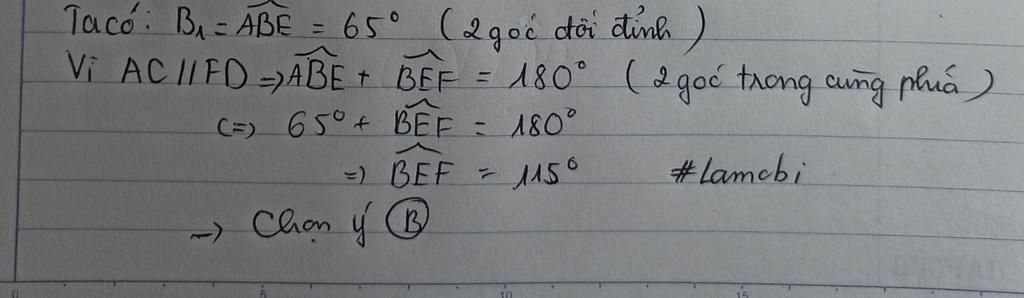 Ta có: B₁ = ABE = 65° (2 góc đối đỉnh)
Vì AC // FD => ABE + BEF = 180° (2 góc trong cùng phía)
<=> 65° + BEF = 180°
=> BEF = 115° #lamcbi
-> Chọn ý B
5 10 15